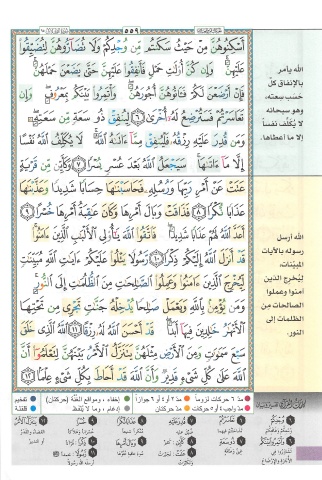 ٥٥٩
أَسْكِنُوهُنَّ مِنْ حَيْثُ سَكَنتُم مِّن وُجْدِكُمْ وَلَا تُضَآرُّوهُنَّ لِتُضَيِّقُوا۟
عَلَيْهِنَّ ۚ وَإِن كُنَّ أُو۟لَـٰتِ حَمْلٍ فَأَنفِقُوا۟ عَلَيْهِنَّ حَتَّىٰ يَضَعْنَ حَمْلَهُنَّ ۚ
فَإِنْ أَرْضَعْنَ لَكُمْ فَـَٔاتُوهُنَّ أُجُورَهُنَّ ۖ وَأْتَمِرُوا۟ بَيْنَكُم بِمَعْرُوفٍ ۖ وَإِن
تَعَاسَرْتُمْ فَسَتُرْضِعُ لَهُۥٓ أُخْرَىٰ ﴿٦﴾ لِيُنفِقْ ذُو سَعَةٍ مِّن سَعَتِهِۦ ۖ
وَمَن قُدِرَ عَلَيْهِ رِزْقُهُۥ فَلْيُنفِقْ مِمَّآ ءَاتَىٰهُ ٱللَّهُ ۚ لَا يُكَلِّفُ ٱللَّهُ نَفْسًا
إِلَّا مَآ ءَاتَىٰهَا ۚ سَيَجْعَلُ ٱللَّهُ بَعْدَ عُسْرٍ يُسْرًا ﴿٧﴾ وَكَأَيِّن مِّن قَرْيَةٍ
عَتَتْ عَنْ أَمْرِ رَبِّهَا وَرُسُلِهِۦ فَحَاسَبْنَـٰهَا حِسَابًا شَدِيدًا وَعَذَّبْنَـٰهَا
عَذَابًا نُّكْرًا ﴿٨﴾ فَذَاقَتْ وَبَالَ أَمْرِهَا وَكَانَ عَـٰقِبَةُ أَمْرِهَا خُسْرًا ﴿٩﴾
أَعَدَّ ٱللَّهُ لَهُمْ عَذَابًا شَدِيدًا ۖ فَٱتَّقُوا۟ ٱللَّهَ يَـٰٓأُو۟لِى ٱلْأَلْبَـٰبِ ٱلَّذِينَ ءَامَنُوا۟ ۚ
قَدْ أَنزَلَ ٱللَّهُ إِلَيْكُمْ ذِكْرًا ﴿١٠﴾ رَّسُولًا يَتْلُوا۟ عَلَيْكُمْ ءَايَـٰتِ ٱللَّهِ مُبَيِّنَـٰتٍ
لِّيُخْرِجَ ٱلَّذِينَ ءَامَنُوا۟ وَعَمِلُوا۟ ٱلصَّـٰلِحَـٰتِ مِنَ ٱلظُّلُمَـٰتِ إِلَى ٱلنُّورِ ۚ
وَمَن يُؤْمِنۢ بِٱللَّهِ وَيَعْمَلْ صَـٰلِحًا يُدْخِلْهُ جَنَّـٰتٍ تَجْرِى مِن تَحْتِهَا
ٱلْأَنْهَـٰرُ خَـٰلِدِينَ فِيهَآ أَبَدًا ۖ قَدْ أَحْسَنَ ٱللَّهُ لَهُۥ رِزْقًا ﴿١١﴾ ٱللَّهُ ٱلَّذِى خَلَقَ
سَبْعَ سَمَـٰوَٰتٍ وَمِنَ ٱلْأَرْضِ مِثْلَهُنَّ يَتَنَزَّلُ ٱلْأَمْرُ بَيْنَهُنَّ لِتَعْلَمُوٓا۟ أَنَّ
ٱللَّهَ عَلَىٰ كُلِّ شَىْءٍ قَدِيرٌ وَأَنَّ ٱللَّهَ قَدْ أَحَاطَ بِكُلِّ شَىْءٍ عِلْمًۢا ﴿١٢﴾
الله يأمر
بالإنفاق كلّ
حسب سعته،
وهو سبحانه
لا يُكلّف نفساً
إلا ما أعطاها.
الله أرسل
رسوله بالآيات
المبيّنات،
ليُخرج الذين
آمنوا وعملوا
الصالحات من
الظلمات إلى
النور.
مدّ ٦ حركات لزوماً
مدّ ٢ أو ٤ أو ٦ جوازاً
إخفاء، ومواقع الغُنّة (حركتان)
تفخيم
مدّ واجب ٤ أو ٥ حركات
مدّ حركتان
إدغام، وما لا يُلفظ
قلقلة